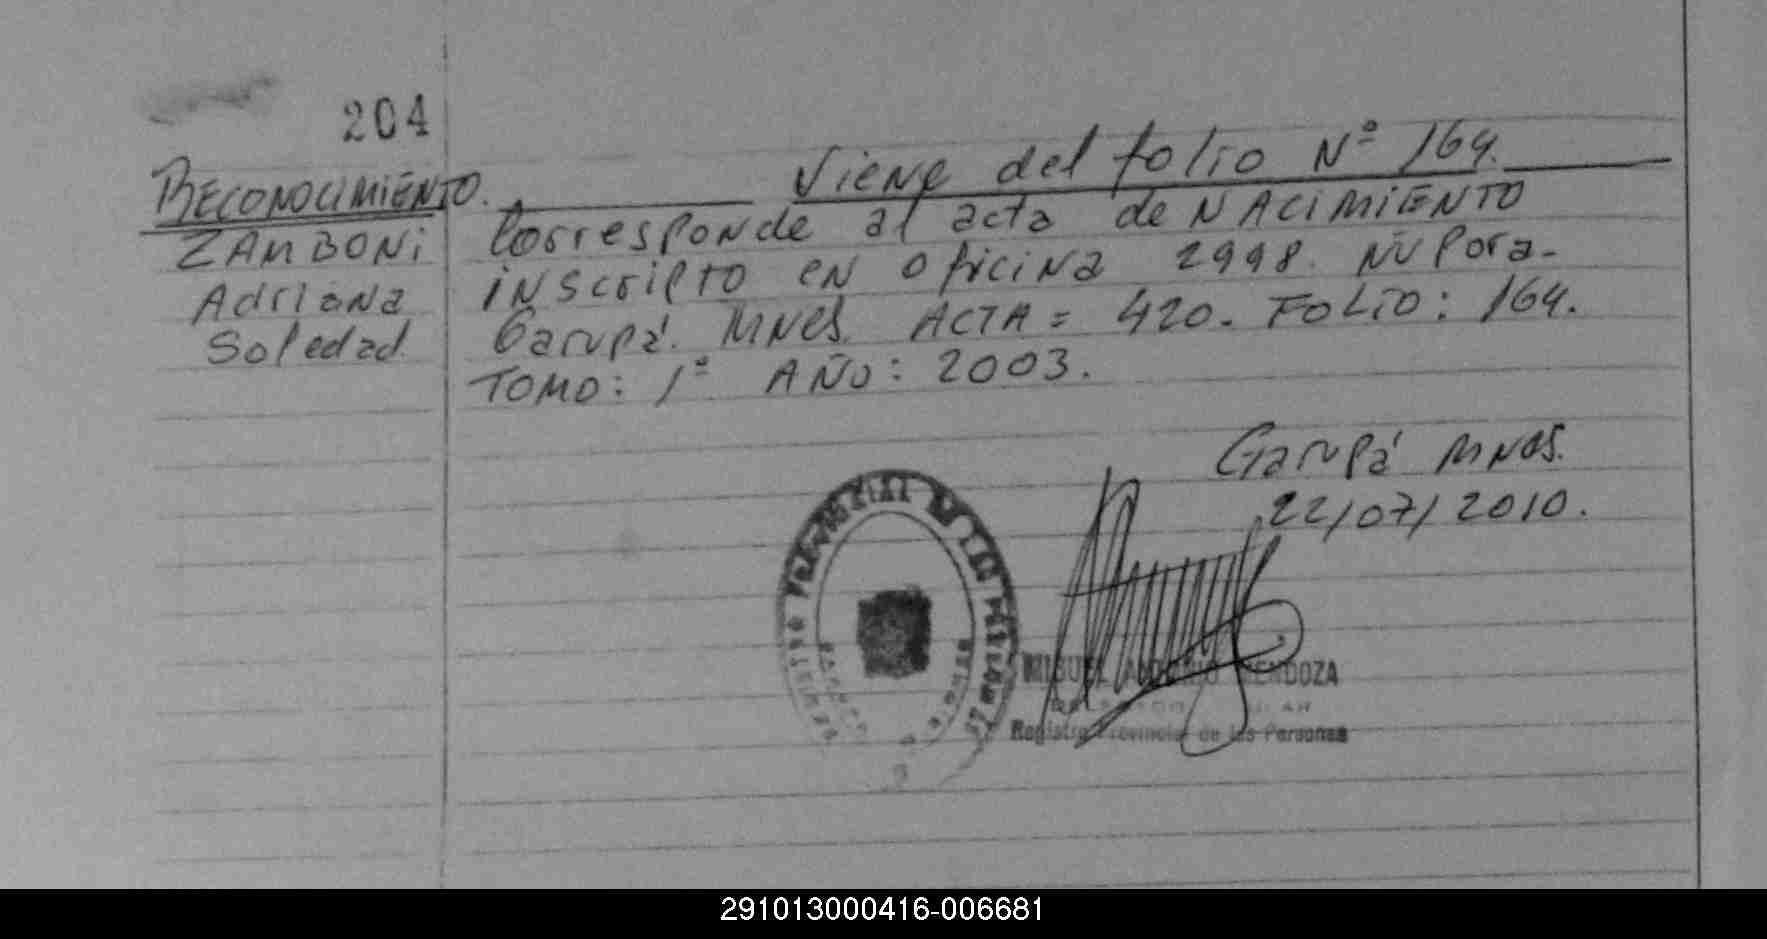 204
RECONOCIMIENTO.
ZAMBONI
Adriana
Soledad.
Viene del folio Nº 164.
Corresponde al acta de NACIMIENTO
inscripto en oficina 2998. Ñu Pora-
Garupá. MNES. ACTA = 420. FOLIO: 164.
TOMO: 1º AÑO: 2003.
Garupá MNES.
22/07/2010.
MIGUEL ANTONIO MENDOZA
Registro Provincial de las Personas
291013000416-006681